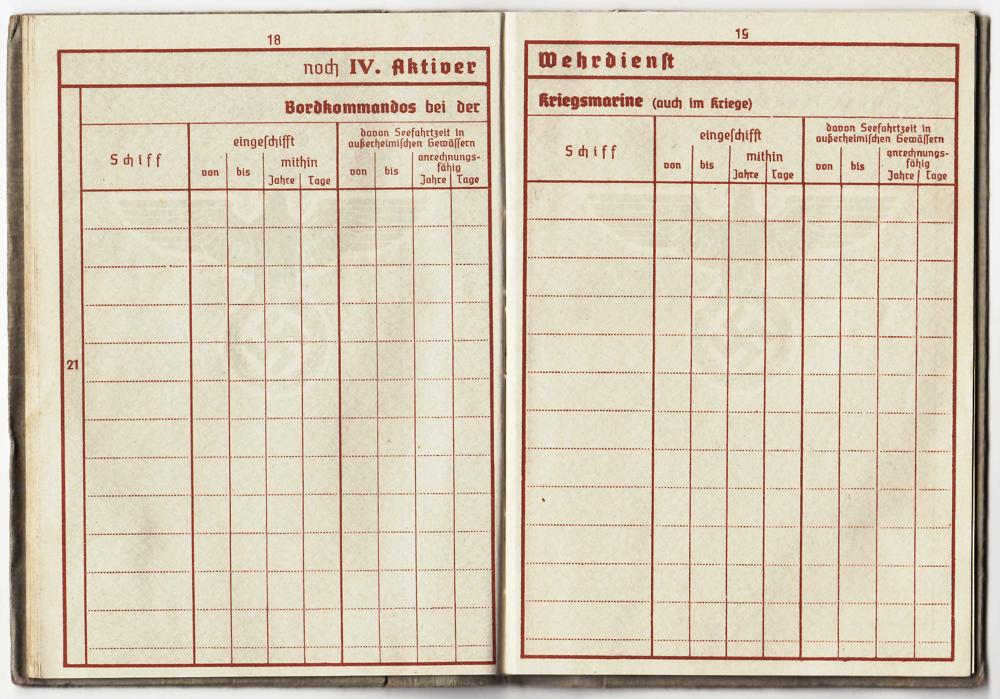 18
noch IV. Aktiver
Bordkommandos bei der
Schiff
eingeschifft
von
bis
mithin
Jahre
Tage
davon Seefahrtzeit in
außerheimischen Gewässern
von
bis
anrechnungs-
fähig
Jahre
Tage
21
19
Wehrdienst
Kriegsmarine (auch im Kriege)
Schiff
eingeschifft
von
bis
mithin
Jahre
Tage
davon Seefahrtzeit in
außerheimischen Gewässern
von
bis
anrechnungs-
fähig
Jahre
Tage